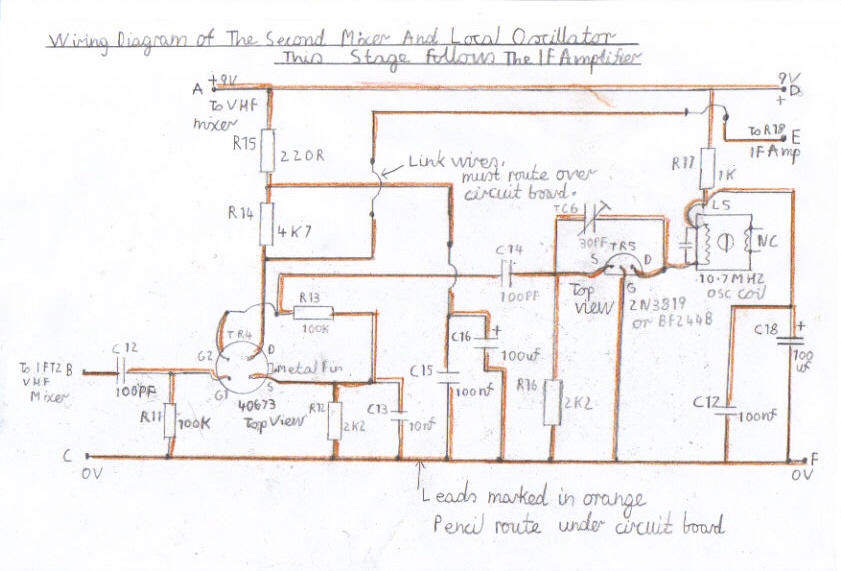 Wiring Diagram of The Second Mixer And Local Oscillator
This Stage Follows The IF Amplifier
A +9V
To VHF
mixer
9V
D
+
To R18
E
IF Amp
R15
220R
Link wires.
must route over
circuit board.
R17
1K
R14
4K7
TC6
30PF
L5
NC
10.7MHZ
OSC coil
C14
100PF
TR5
S
D
G
Top
view
2N3819
or BF244B
R13
100K
TR4
G2
D
Metal Pin
G1
S
40673
Top View
C12
100PF
To IFT2 B
VHF
Mixer
R11
100K
R12
2K2
C13
10nf
C15
100nf
C16
+
100uf
R16
2K2
C18
+
100
uf
C12
100nf
C
0V
F
0V
Leads marked in orange
Pencil route under circuit board